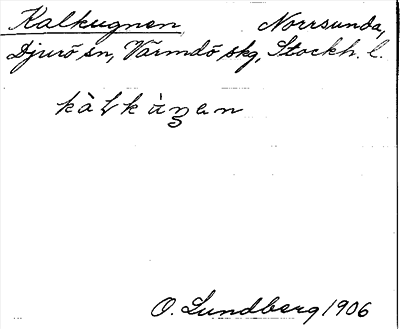 Kalkugnen Norrsunda,
Djurö sn, Värmdö skg, Stockh. l.
kàlkùgen
O. Lundberg 1906